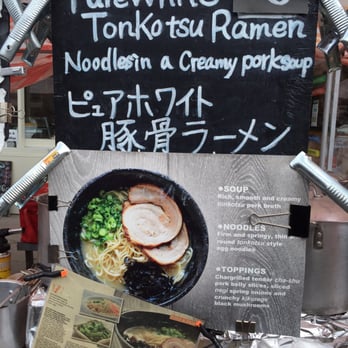 PureWhite
Tonkotsu Ramen
Noodles in a Creamy porksoup
ピュアホワイト
豚骨ラーメン
SOUP
Rich, smooth and creamy
tonkotsu pork broth
NOODLES
Firm and springy, thin
round tonkotsu style
egg noodles
TOPPINGS
Chargrilled tender cha-shu
pork belly slices, sliced
negi spring onions and
crunchy kikurage
black mushrooms